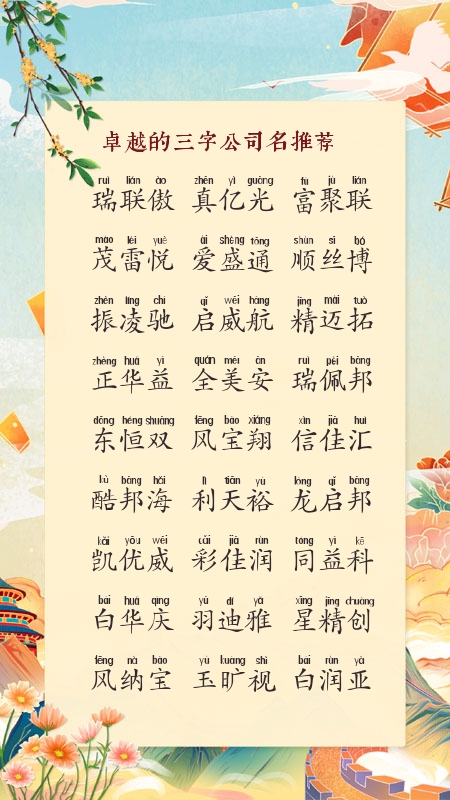 卓越的三字公司名推荐
ruì lián ào zhēn yì guāng fù jù lián
瑞联傲 真亿光 富聚联
mào léi yuè ài shèng tōng shùn sī bó
茂雷悦 爱盛通 顺丝博
zhèn líng chí qǐ wēi háng jīng mài tuò
振凌驰 启威航 精迈拓
zhèng huá yì quán měi ān ruì pèi bāng
正华益 全美安 瑞佩邦
dōng héng shuāng fēng bǎo xiáng xìn jiā huì
东恒双 风宝翔 信佳汇
kù bāng hǎi lì tiān yù lóng qǐ bāng
酷邦海 利天裕 龙启邦
kǎi yōu wēi cǎi jiā rùn tóng yì kē
凯优威 彩佳润 同益科
bái huá qìng yǔ dí yǎ xīng jīng chuàng
白华庆 羽迪雅 星精创
fēng nà bǎo yù kuàng shì bái rùn yà
风纳宝 玉旷视 白润亚